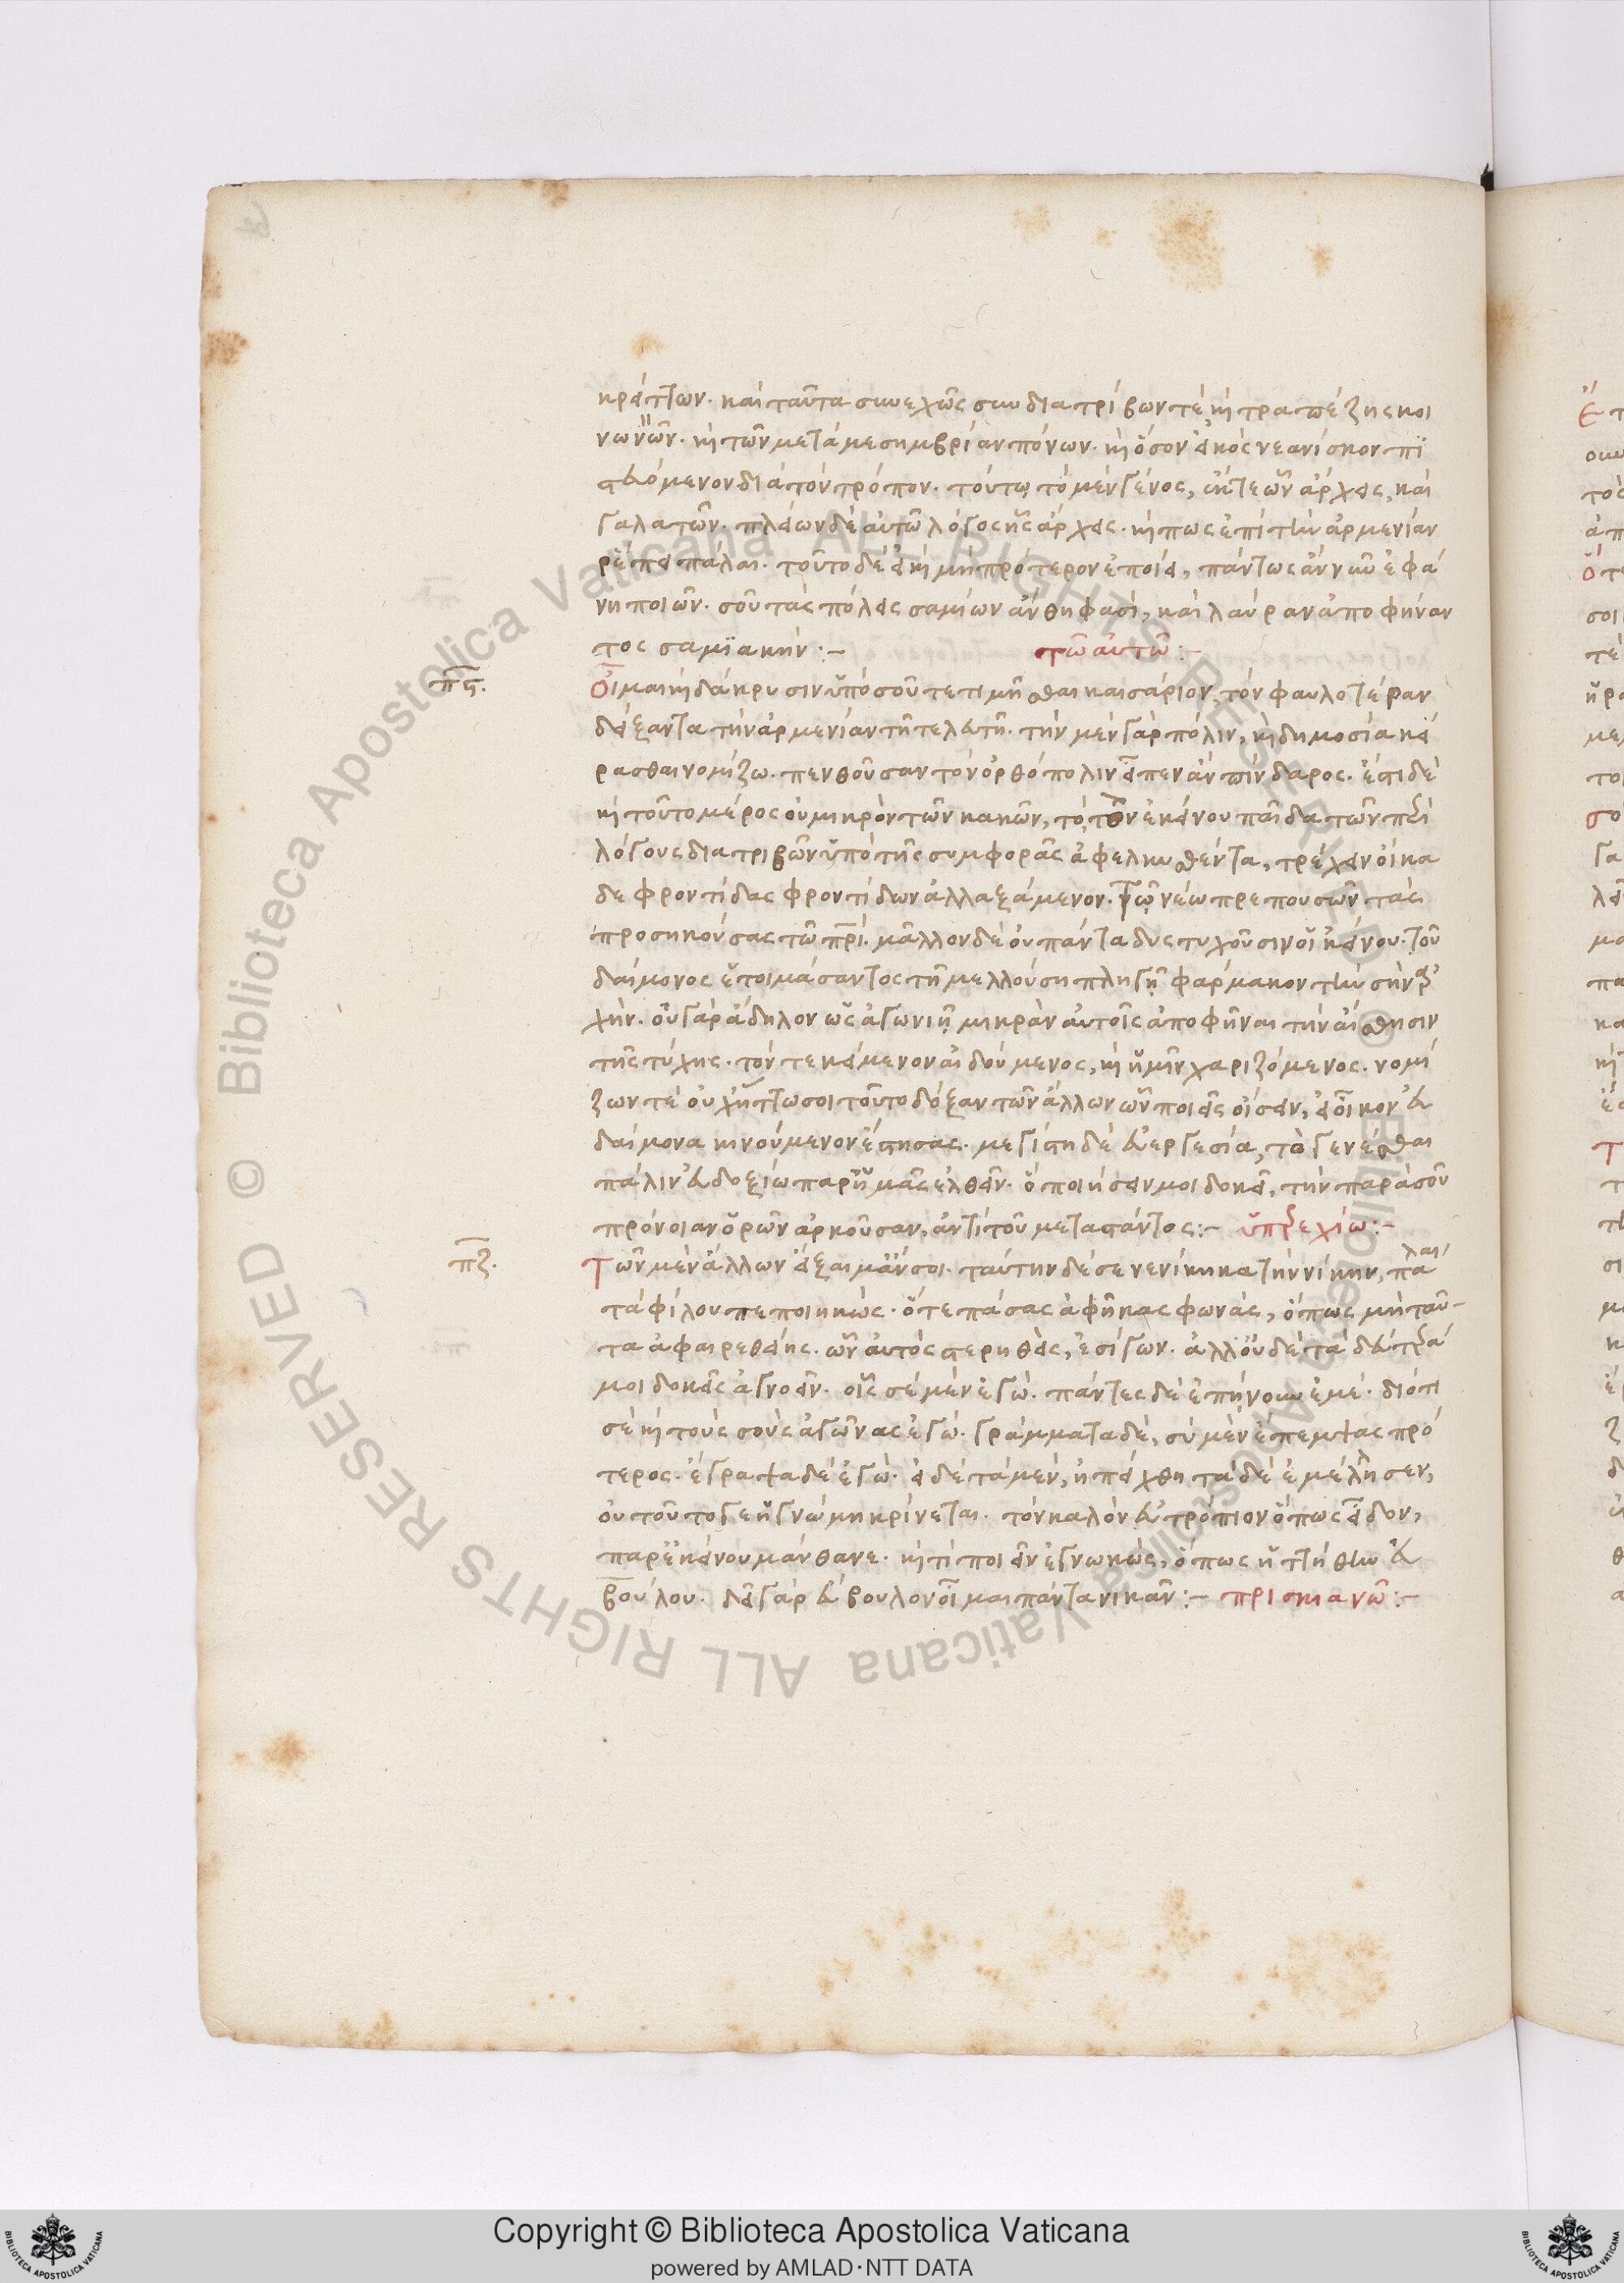 κράττων. καὶ ταῦτα συνεχῶς συνδιατρίβων τὲ, κὶ τραπέζης κοι
νωνῶν. κὶ τῶν μετὰ μεσημβρίαν πόνων. κὶ ὅσον εἰκὸς νεανίσκον πι
στευόμενον διὰ τὸν τρόπον. τούτω τὸ μὲν γένος, ἐκ τε ὧν ἄρχεις, καὶ
γαλατῶν. πλείων δὲ αὐτῶ λόγος ἧς ἄρχεις. κὶ πως ἐπὶ τὴν ἀρμενίαν
ῥέπει πάλαι. τοῦτο δὲ εἰ κὶ μὴ πρότερον ἐποίει, πάντως ἂν νῦν ἐφά
νη ποιῶν. σοῦ τὰς πόλεις σαμίων ἄνθη φασὶ, καὶ λαύραν ἀποφήναν
τος σαμϊακήν :– τῶ αὐτῶ :–
πς. Οἶμαι κὶ δάκρυσιν ὑπὸ σοῦ τετιμῆσθαι καισάριον, τὸν φαυλοτέραν
δείξαντα τὴν ἀρμενίαν τῆ τελευτῆ. τὴν μὲν γὰρ πόλιν, κὶ δημοσία κεί
ρασθαι νομίζω. πενθοῦσαν τὸν ὀρθόπολιν εἶπεν ἂν πίνδαρος. ἔστι δὲ
κὶ τοῦτο μέρος οὐ μικρὸν τῶν κακῶν, τὸ, τὸν ἐκείνου παῖδα τῶν περὶ
λόγους διατριβῶν ὑπὸ τῆς συμφορᾶς ἀφελκυσθέντα, τρέχειν οἴκα
δε φροντίδας φροντίδων ἀλλαξάμενον. τῶν νέω πρεπουσῶν τὰς
προσηκούσας τῶ πρί. μᾶλλον δὲ οὐ πάντα δυςτυχοῦσιν οἱ ἐκείνου. τοῦ
δαίμονος ἑτοιμάσαντος τῆ μελλούση πληγῆ φάρμακον τὴν σὴν ἀρ
χήν. οὐ γὰρ ἄδηλον ὡς ἀγωνιῆ μικρὰν αὐτοῖς ἀποφῆναι τὴν αἴσθησιν
τῆς τύχης. τόν τε κείμενον αἰδούμενος, κὶ ἡμῖν χαριζόμενος. νομί
ζων τὲ οὐχ ἧττω σοι τοῦτο δόξαν τῶν ἄλλων ὧν ποιεῖς οἴσειν, εἰ οἶκον εὐ
δαίμονα κινούμενον ἔστησας. μεγίστη δὲ εὐεργεσία, τὸ γενέσθαι
πάλιν εὐδοξίω παρ' ἡμᾶς ἐλθεῖν. ὃ ποιήσειν μοι δοκεῖ, τὴν παρὰ σοῦ
πρόνοιαν ὁρῶν ἀρκοῦσαν, ἀντὶ τοῦ μεταστάντος :– ὑπερεχίω :–
πζ. Τῶν μὲν ἄλλων εἴξαιμ' ἄν σοι. ταύτην δέ σε νενίκηκα τὴν νίκην, παλαι
τὰ φίλου πεποιηκώς. ὅτε πάσας ἀφῆκας φωνὰς, ὅπως μὴ ταῦ–
τα ἀφαιρεθείης. ὧν αὐτὸς στερηθεὶς, ἐσίγων. ἀλλ' οὐδὲ τὰ δεύτερά
μοι δοκεῖς ἀγνοεῖν. οἷς σὲ μὲν ἐγὼ. πάντες δὲ ἐπήνουν ἐμέ. διότι
σὲ κὶ τοὺς σοὺς ἀγῶνας ἐγώ. γράμματα δὲ, σὺ μὲν ἔπεμψας πρό
τερος. ἔγραψα δὲ ἐγώ. εἰ δὲ τὰ μὲν, ἠπείχθη τὰ δὲ ἐμέλλησεν,
οὐ τοῦτο γε ἡ γνώμη κρίνεται. τὸν καλὸν εὐτρόπιον ὅπως εἶδον,
παρ' ἐκείνου μάνθανε. κὶ τί ποιεῖν ἐγνωκὼς, ὅπως ἡττήθην εὐ
βούλου. δεῖ γὰρ εὔβουλον οἶμαι πάντα νικᾶν :– πρισκιανῶ :–
Copyright © Biblioteca Apostolica Vaticana
powered by AMLAD·NTT DATA